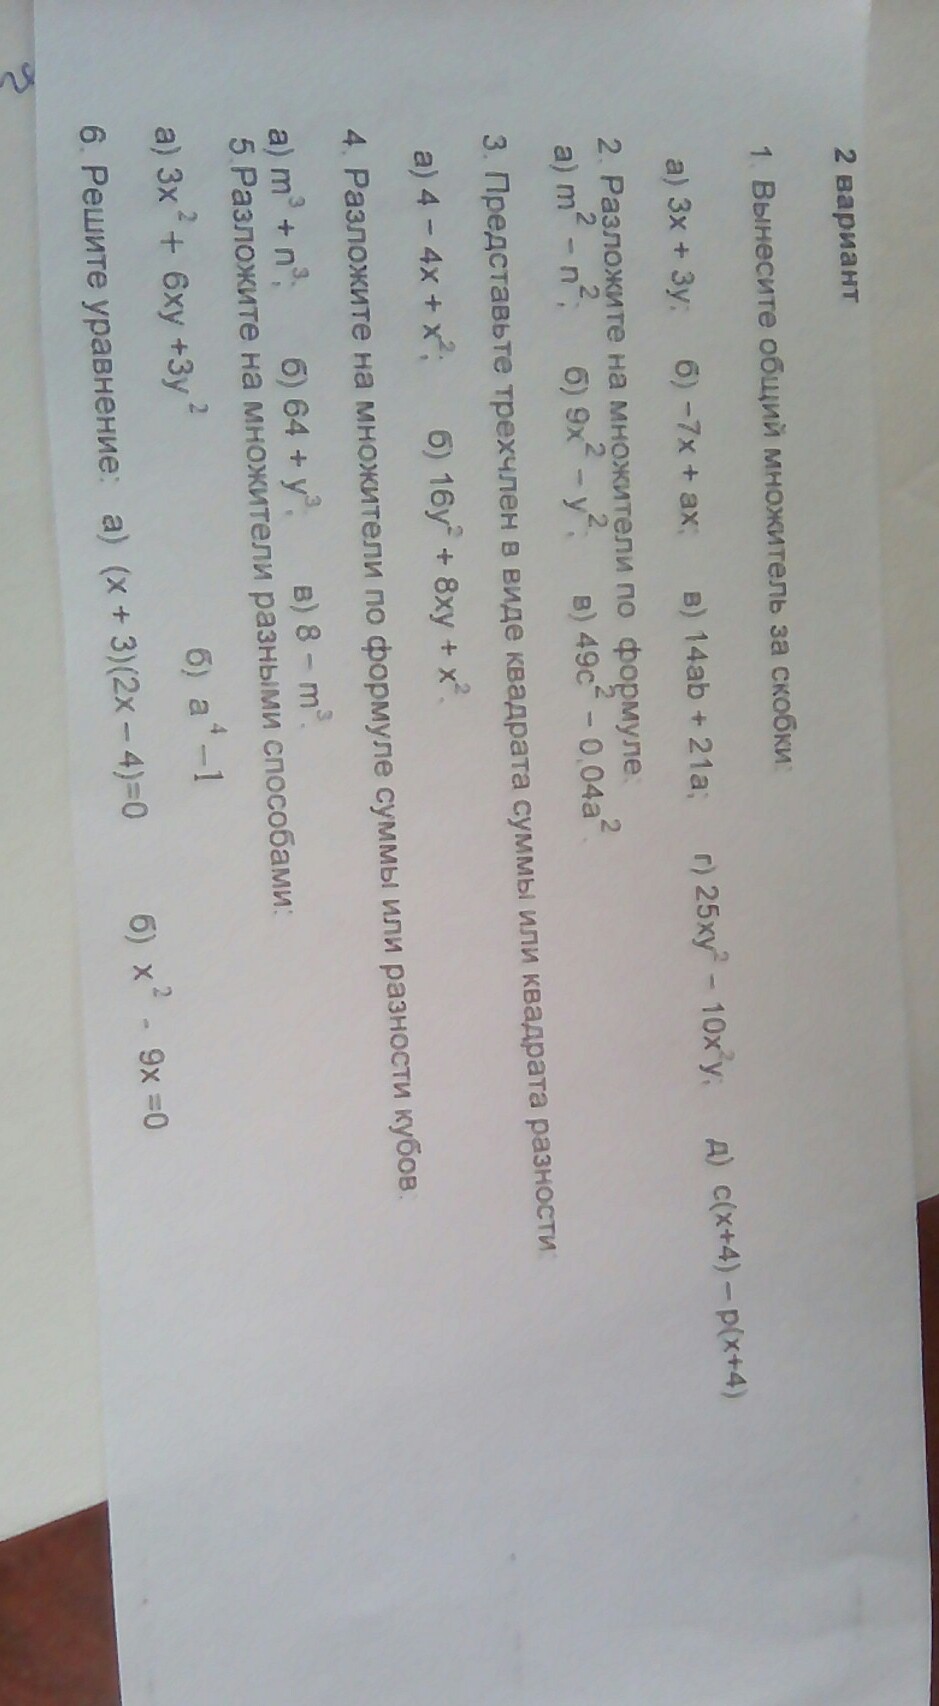 2 вариант
1. Вынесите общий множитель за скобки:
а) 3x + 3y; б) –7x + ax; в) 14ab + 21a; г) 25xy² – 10x²y; д) c(x+4) – p(x+4)
2. Разложите на множители по формуле:
а) m² – n²; б) 9x² – y²; в) 49c² – 0,04a².
3. Представьте трехчлен в виде квадрата суммы или квадрата разности:
а) 4 – 4x + x²; б) 16y² + 8xy + x².
4. Разложите на множители по формуле суммы или разности кубов:
а) m³ + n³; б) 64 + y³; в) 8 – m³.
5.Разложите на множители разными способами:
а) 3x² + 6xy +3y² б) a⁴ –1
6. Решите уравнение: а) (x + 3)(2x – 4)=0 б) x² - 9x =0